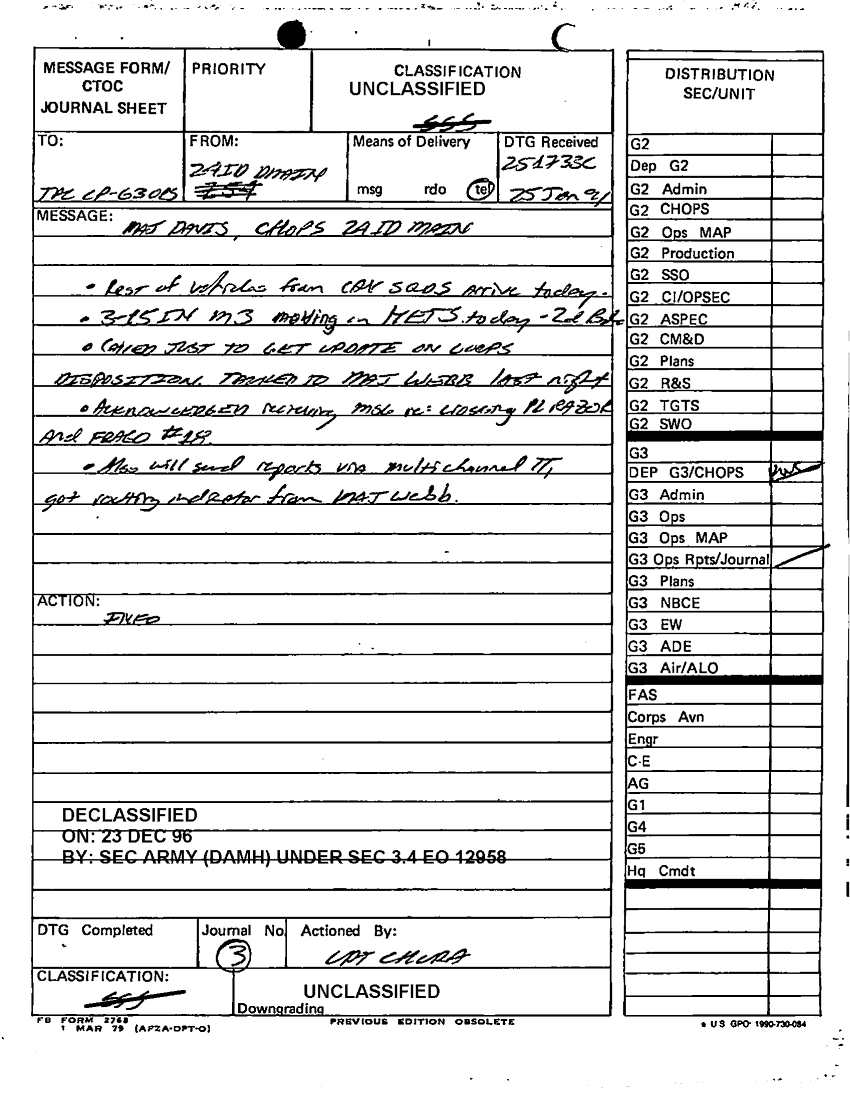 MESSAGE FORM/
CTOC
JOURNAL SHEET
PRIORITY
CLASSIFICATION
UNCLASSIFIED
TO:
TAC CP-G3OPS
FROM:
24ID DMAIN
Means of Delivery
msg rdo tel
DTG Received
251733C
25 Jan 91
MESSAGE:
MAJ DAVIS, CHOPS 24ID MAIN
• Rest of vehicles from CAV SQDS arrive today.
• 3-15IN M3 moving in HETS today - 2d Bde
• CALLED JUST TO GET UPDATE ON CORPS
DISPOSITION. TALKED TO MAJ WEBB last night
• ACKNOWLEDGED receiving msg re: crossing PL RAZOR
And FRAGO #19.
• Also will send reports via multichannel TT,
got routing indicator from MAJ Webb.
ACTION:
FILED
DECLASSIFIED
ON: 23 DEC 96
BY: SEC ARMY (DAMH) UNDER SEC 3.4 EO 12958
DTG Completed
Journal No
3
Actioned By:
CPT CHURA
CLASSIFICATION:
UNCLASSIFIED
Downgrading
FB FORM 2768
1 MAR 79 (AFZA-DPT-O)
PREVIOUS EDITION OBSOLETE
DISTRIBUTION
SEC/UNIT
G2
Dep G2
G2 Admin
G2 CHOPS
G2 Ops MAP
G2 Production
G2 SSO
G2 CI/OPSEC
G2 ASPEC
G2 CM&D
G2 Plans
G2 R&S
G2 TGTS
G2 SWO
G3
DEP G3/CHOPS
G3 Admin
G3 Ops
G3 Ops MAP
G3 Ops Rpts/Journal
G3 Plans
G3 NBCE
G3 EW
G3 ADE
G3 Air/ALO
FAS
Corps Avn
Engr
C-E
AG
G1
G4
G5
Hq Cmdt
* US GPO: 1990-730-084